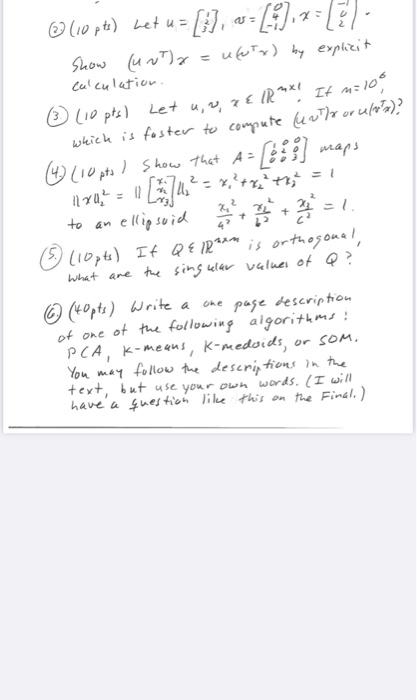 ② (10 pts) Let u = [1 2 3], v = [0 4 -1], x = [-1 0 2].
Show (uvᵀ)x = u(vᵀx) by explicit
calculation.
③ (10 pts) Let u, v, x ∈ ℝ^{n×1}. If n = 10⁶,
which is faster to compute (uvᵀ)x or u(vᵀx)?
④ (10 pts) Show that A = [1 0 0; 0 2 0; 0 0 3] maps
‖x‖₂² = ‖[x₁ x₂ x₃]‖₂² = x₁² + x₂² + x₃² = 1
to an ellipsoid x₁²/a² + x₂²/b² + x₃²/c² = 1.
⑤ (10 pts) If Q ∈ ℝ^{n×n} is orthogonal,
what are the singular values of Q?
⑥ (40 pts) Write a one page description
of one of the following algorithms:
PCA, K-means, K-medoids, or SOM.
You may follow the descriptions in the
text, but use your own words. (I will
have a question like this on the Final.)